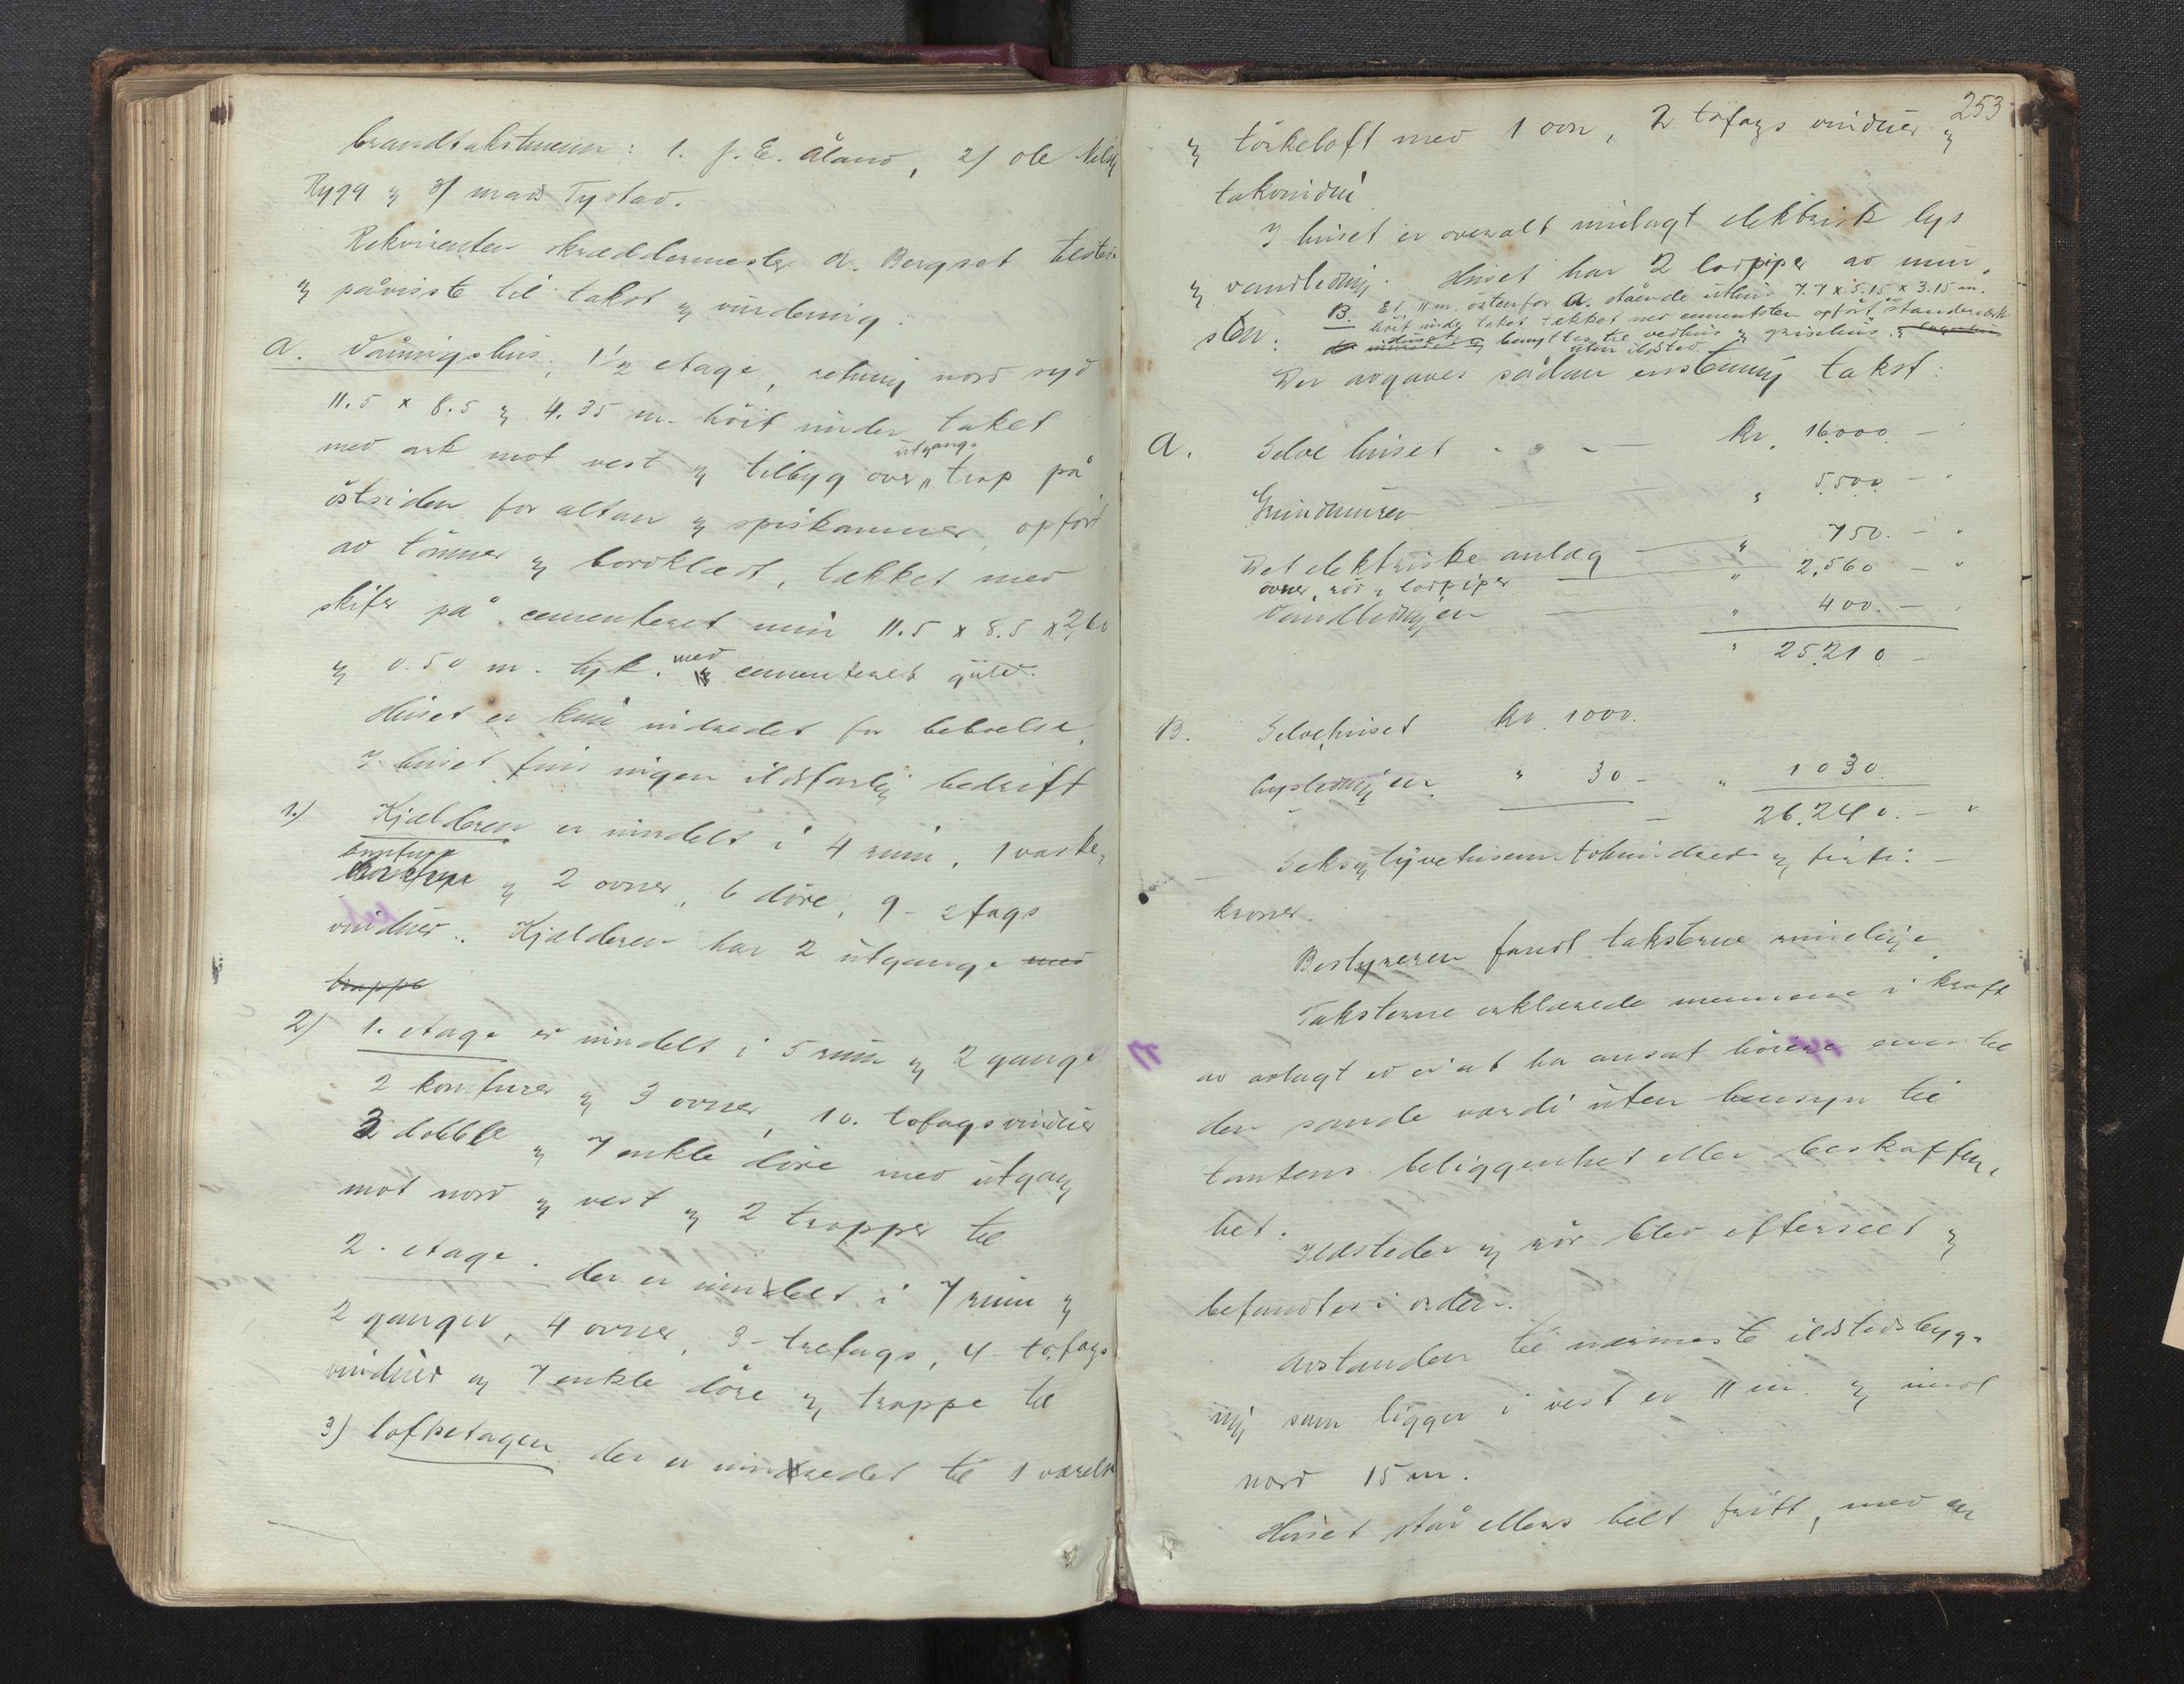 brandtakstmenn: 1. J. E. Åland, 2/ Ole
Rygg og 3/ Mads Tystad.
Rekvirenten skræddermester A. Bergset
og påviste til takst og vurdering:
A. Våningshus, 1½ etage, retning nord syd
11.5 x 8.5 og 4.35 m. høit under taket
med ark mot vest og tilbyg over utgangs trap på
østsiden for altan og spiskammer, opført
av tømmer og bordklædt, tækket med
skifer på cementeret mur 11.5 x 8.5 x 2,60
og 0.50 m. tyk. med cementeret gulv.
Huset er kun indredet for beboelse,
I huset fins ingen ildsfarlig bedrift
1.) Kjælderen er inndelt i 4 rum, 1 vaske,
komfyre og 2 ovner, 6 døre, 9 - 2 fags
vinduer. Kjælderen har 2 utgange med
trappe
2) 1. etage er inndelt i 5 rum og 2 gange
2 komfurer og 3 ovner, 10. tofags vinduer
3 dobble og 7 enkle døre med utgang
mot nord og vest og 2 trapper til
2. etage. der er inndelt i 7 rum og
2 ganger, 4 ovner, 3 - trefags, 4 - tofags
vinduer og 7 enkle døre og trappe til
3) loftsetagen der er inndredet til 1 værelse
253
og tørkeloft med 1 ovn, 2 tofags vinduer og
takvindu
I huset er overalt innlagt elektrisk lys
og vandledning. Huset har 2 lodpiper av mur,
sten.
B. Et 11 m. østenfor A. stående uthus 7.7 x 5.15 x 3.15 m.
høit under taket tækket med cementsten opført av standerverk
huset benyttes til vedhus og grisehus
uten ildsted.
Der avgaves sådan enstemmig takst:
A. Selve huset - - - kr. 16.000. -
Grundmuren " 5.500. -
Det elektriske anlæg - " 750. -
ovner, rør og lodpiper - " 2.560 -
Vandledningen - " 400. -
" 25.210 -
B. Selve huset kr. 1000.
Lysledningen " 30 - " 1030.
26.240. -
Seksogtyvetusentohundrede og firti: -
kroner.
Bestyreren fandt taksterne rimelige.
Taksterne erklærede mennene i kraft
av avlagt ed ei at ha ansat høiere enn til
den sande værdi uten hensyn til
tomtens beliggenhet eller beskaffen,
het.
Ildsteder og rør blev efterseet og
befandtes i orden.
Avstanden til nærmeste ildstedsbyg-
ning som ligger i vest er 11 m. og imot
nord 15 m.
Huset står ellers helt fritt, med en